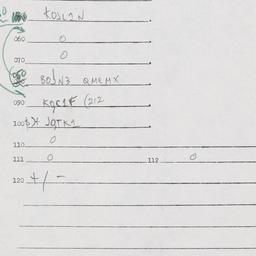 060 0
070 0
080 BOJN3 QMEMX
090 KQC1F (212
100 JQTK1
110 0
111 0 112 0
120 +/-